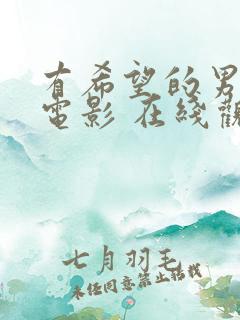 有希望的男
電影 在綫觀
七月羽毛
未经同意禁止搭载